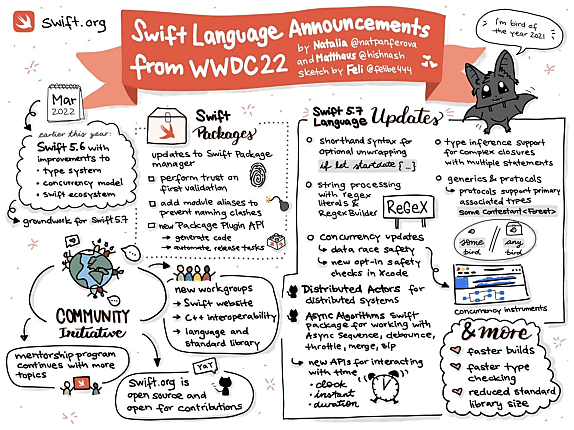 swift.org
Swift Language Announcements
from WWDC22
by Natalia @natpanferova
and Matthaus @hishnash
sketch by Feli @felibe444
I'm bird of
the year 2021
Mar
2022
earlier this year:
Swift 5.6 with
improvements to
• type system
• concurrency model
• swift ecosystem
groundwork for Swift 5.7
Swift
Packages
updates to Swift Package
manager
perform trust on
first validation
add module aliases to
prevent naming clashes
new Package Plugin API
→ generate code
→ automate release tasks
COMMUNITY
Initiative
new workgroups
→ Swift website
→ C++ interoperability
→ language and
standard library
mentorship program
continues with more
topics
YAY
Swift.org is
open source and
open for contributions
Swift 5.7
Language Updates
shorthand syntax for
optional unwrapping
if let startdate {...}
string processing
with regex
literals &
RegexBuilder
ReGeX
concurrency updates
→ data race safety
→ new opt-in safety
checks in Xcode
Distributed Actors for
distributed systems
Async Algorithms Swift
package for working with
Async Sequence, debounce,
throttle, merge, zip
→ new APIs for interacting
with time
• clock
• instant
• duration
type inference support
for complex closures
with multiple statements
generics & protocols
→ protocols support primary
associated types
Some Contestant<Forest>
some
bird
any
bird
concurrency instruments
& more
faster builds
faster type
checking
reduced standard
library size